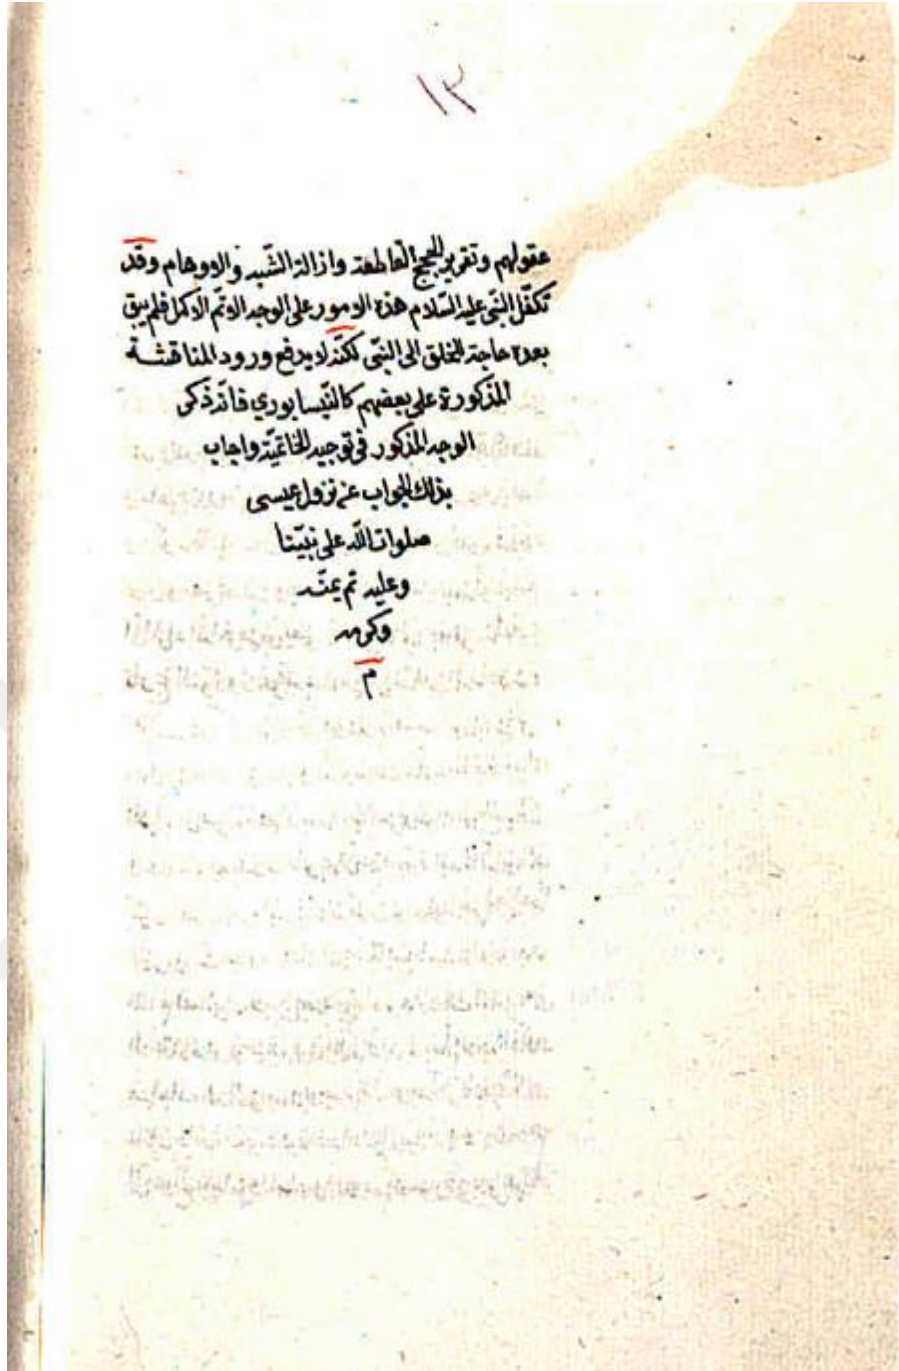 ١٣
عقولهم وتقرير الحجج القاطعة وازالة الشبه والاوهام وقد
تكفّل النبّى عليه السّلام هذه الامور على الوجه الاتمّ الاكمل فلم يبق
بعده حاجة للخلق الى النبّى لكنّه لا يدفع ورود المناقشة
المذكورة على بعضهم كالنّيسابوري فانّه ذكر
الوجه المذكور فى توجيه الخاتميّة واجاب
بذلك الجواب عن نزول عيسى
صلوات اللّه على نبيّنا
وعليه تم بمنّه
وكرمه
م